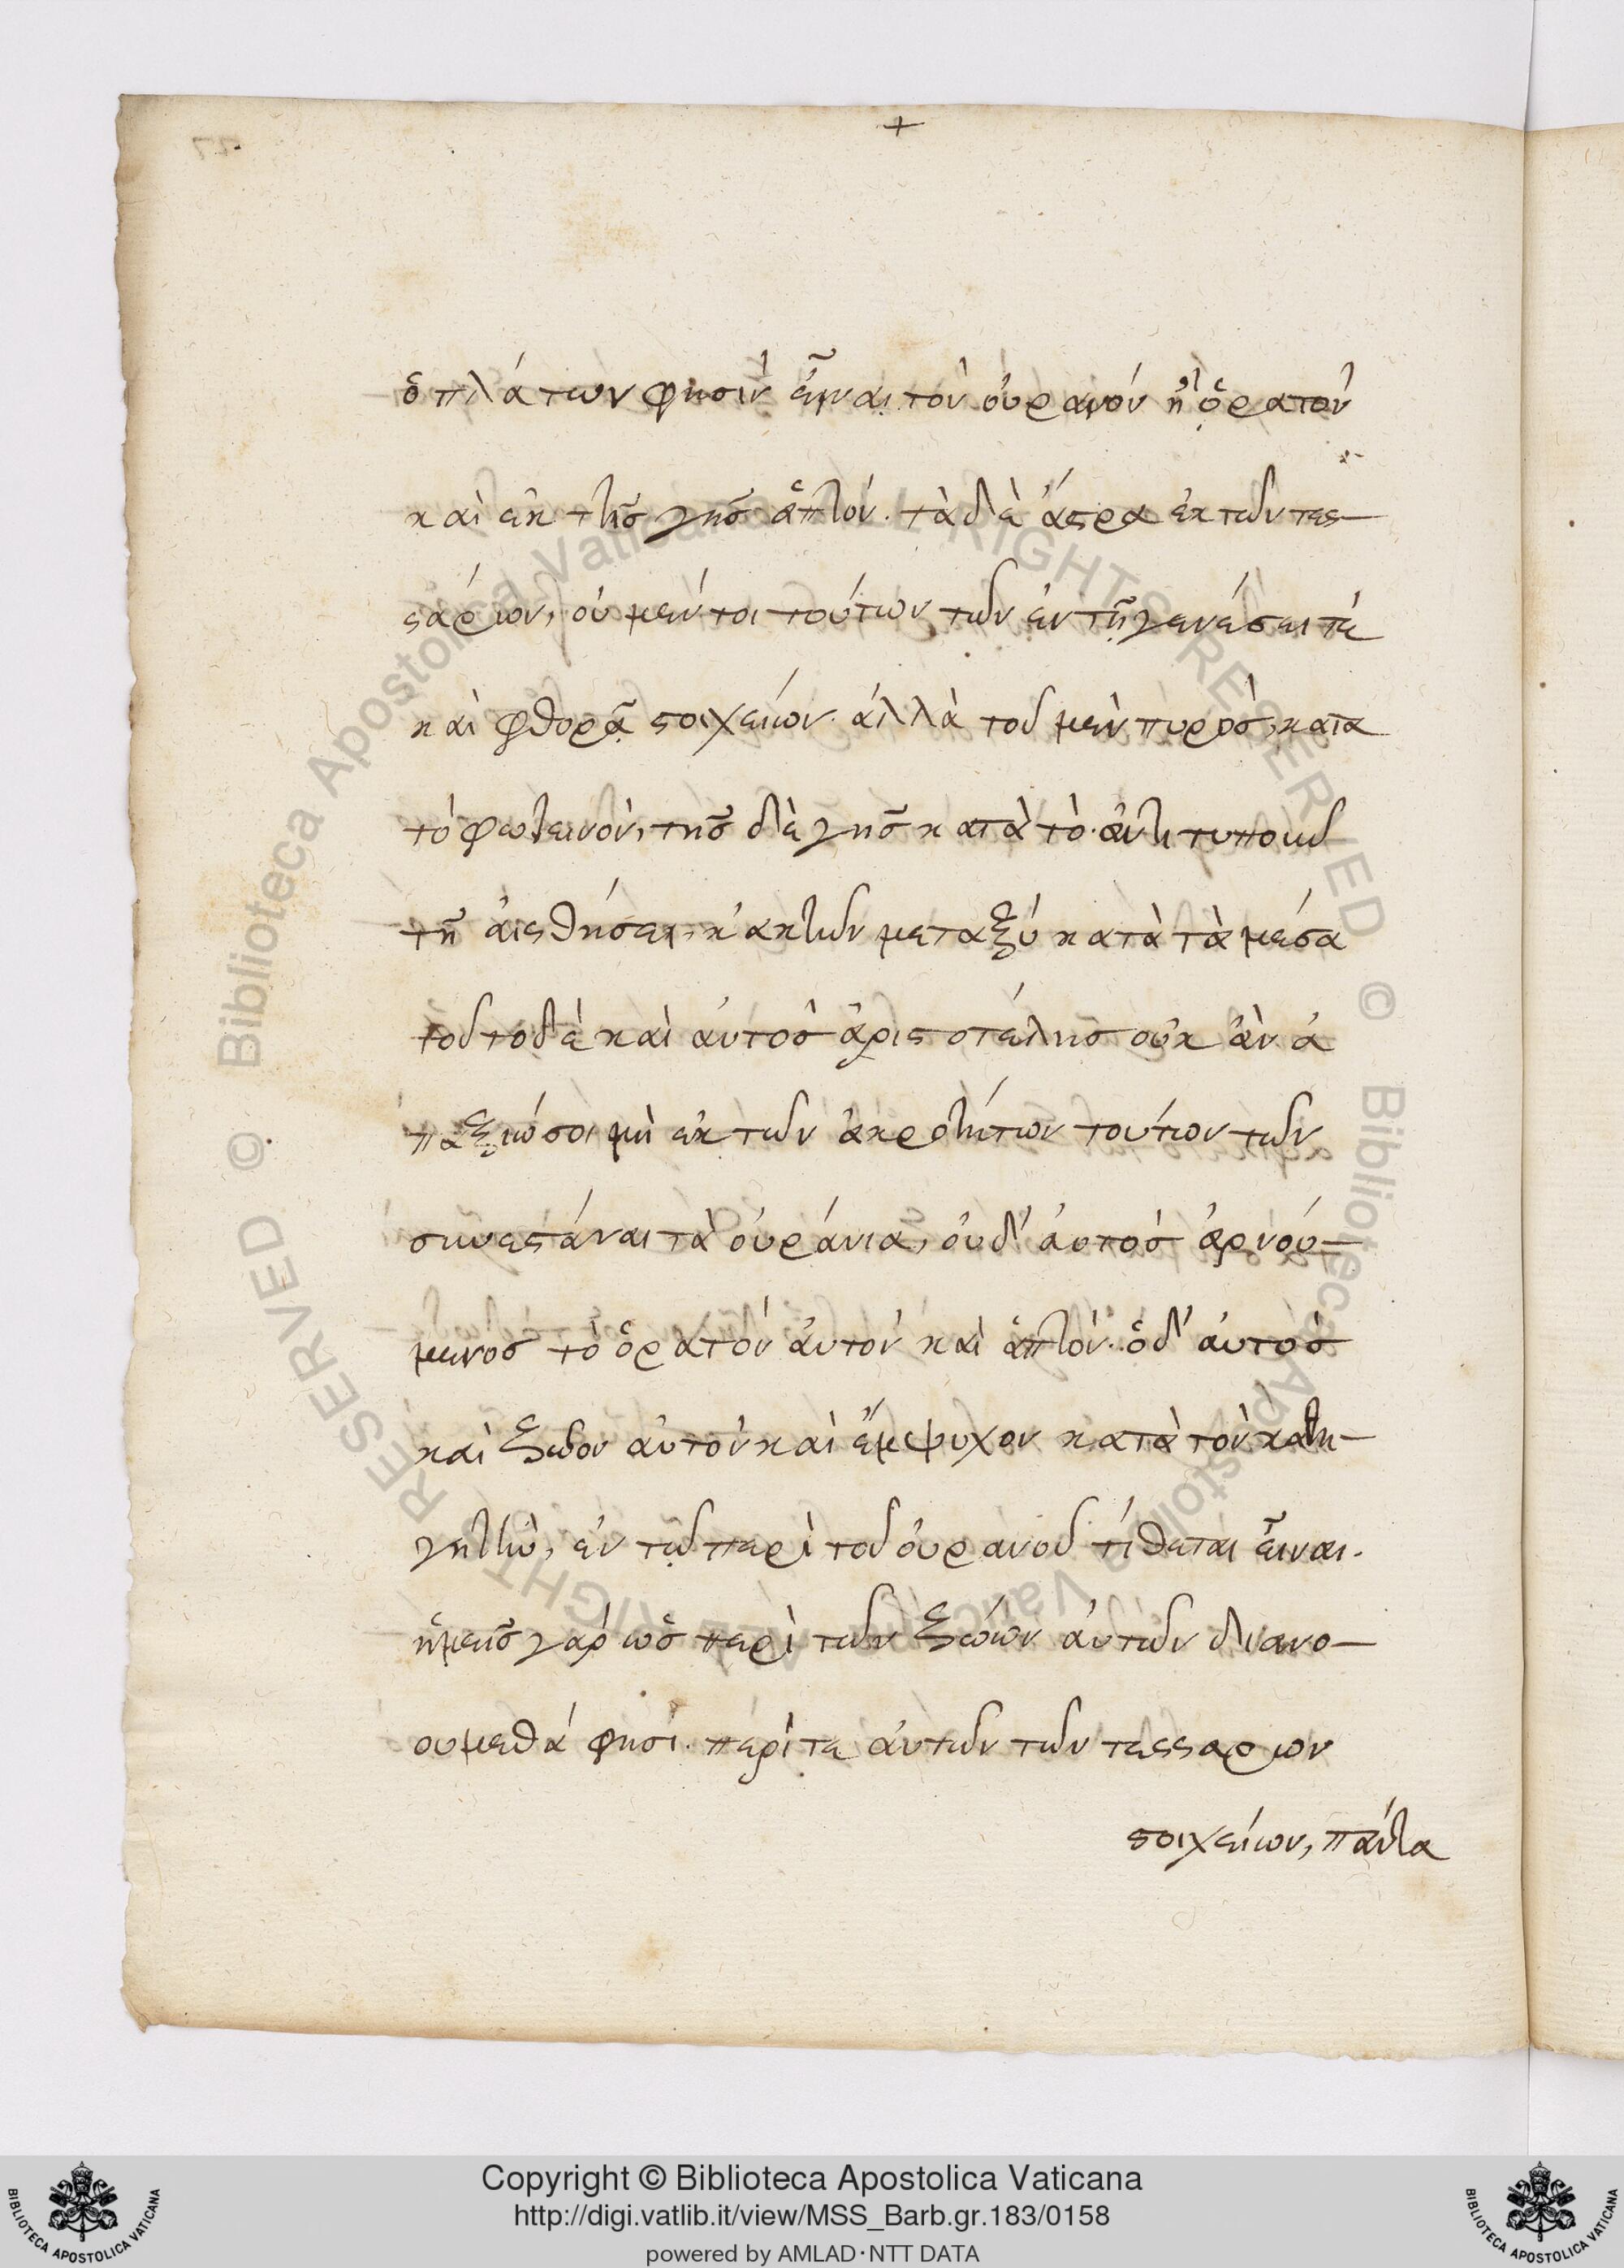 +
ὁ πλάτων φησὶν εἶναι τὸν οὐρανόν ἢ ὁρατὸν
καὶ ἐκ τῆς γῆς ἁπτόν. τὰ δὲ ἄστρα ἐκ τῶν τεσ-
σάρων, οὐ μέν τοι τούτων τῶν ἐν τῇ γενέσει τὲ
καὶ φθορᾷ στοιχείων. ἀλλὰ τοῦ μὲν πυρὸς, κατα
τὸ φωτεινὸν, τῆς δὲ γῆς κατὰ τὸ ἀντιτυποῦν
τῇ αἰσθήσει, κἀκ τῶν μεταξύ κατὰ τὰ μέσα
τοῦτο δὲ καὶ αὐτὸς ἀριστοτέλης οὐκ ἂν ἀ
παξιώσοι μὴ ἐκ τῶν ἀκροτήτων τούτων τῶν
συνεστάναι τὰ οὐράνια, οὐδ' αὐτὸς ἀρνού-
μενος τὸ ὁρατὸν αὐτὸν καὶ ἁπτόν. ὁ δ' αὐτὸς
καὶ ζῶον αὐτὸν καὶ ἔμψυχον κατὰ τὸν καθη-
γητὴν, ἐν τῷ περὶ τοῦ οὐρανοῦ τίθεται εἶναι.
ἡμεῖς γὰρ ὡς περὶ τῶν ζώων αὐτῶν διανο-
ουμεθά φησι. περὶ τε αὐτῶν τῶν τεσσαρων
στοιχείων, πάντα
Copyright © Biblioteca Apostolica Vaticana
http://digi.vatlib.it/view/MSS_Barb.gr.183/0158
powered by AMLAD·NTT DATA